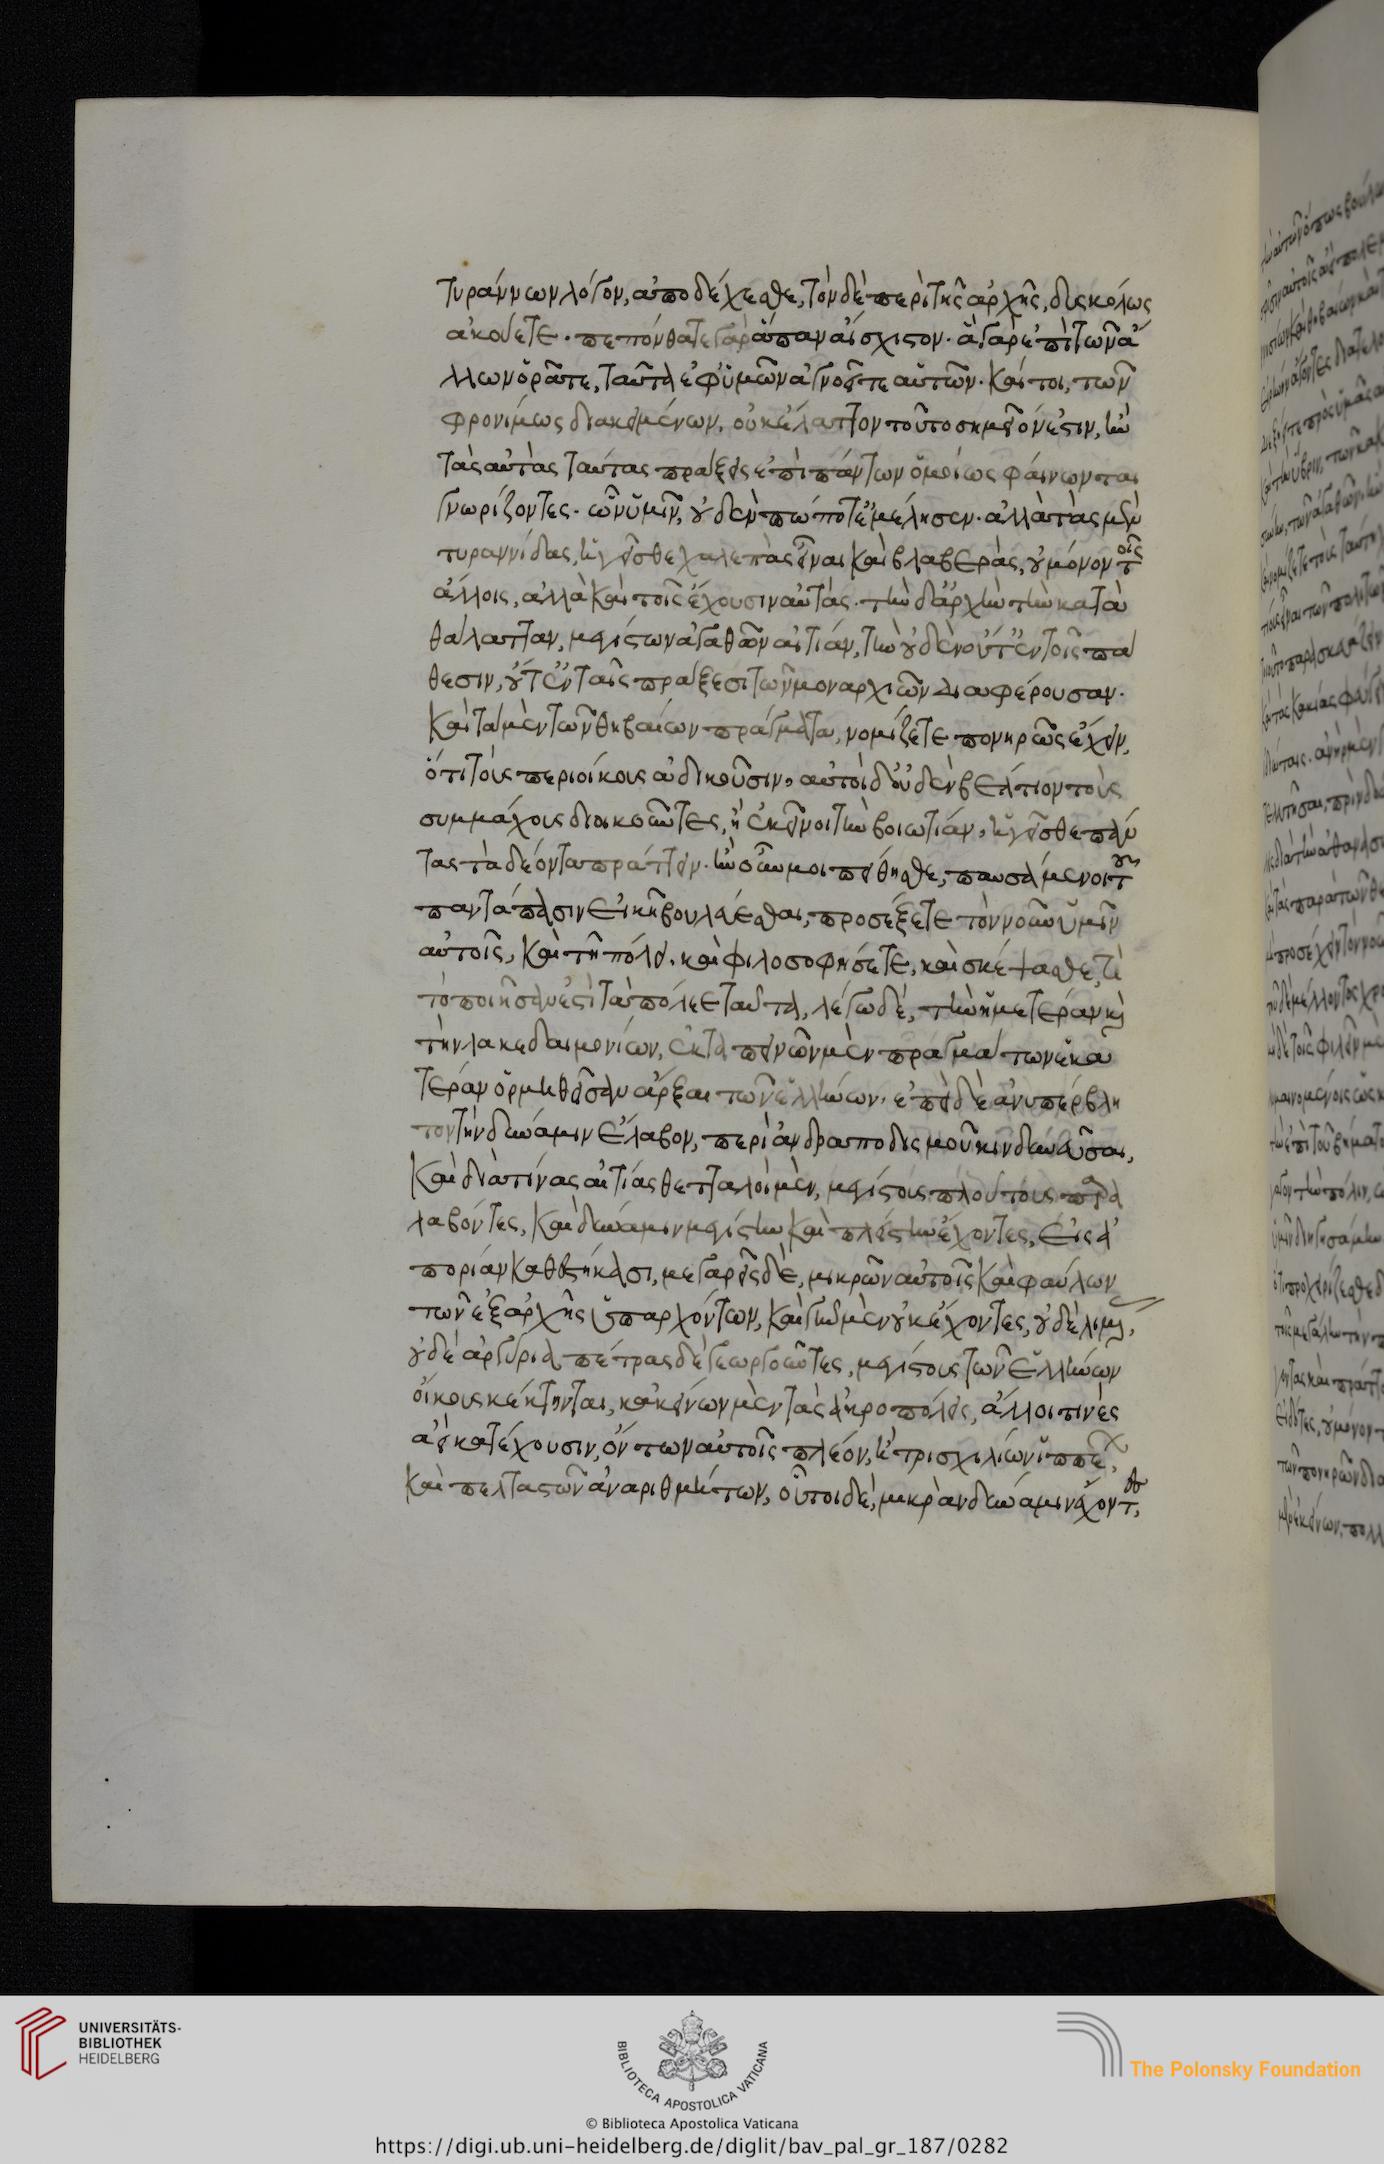 τυράννων λόγον, ἀποδέχεσθε, τὸν δὲ περὶ τῆς ἀρχῆς, δυσκόλως
ἀκούετε. πεπόνθατε γὰρ ἅπαν αἴσχιστον. ἃ γὰρ ἐπὶ τῶν ἄ
λλων ὁρᾶτε, ταῦτα ἐφ' ὑμῶν ἀγνοεῖτε αὐτῶν. καίτοι, τῶν
φρονίμως διακειμένων, οὐκ ἐλάττον τοῦτο σημεῖόν ἐστιν, ἢν
τὰς αὐτὰς ταύτας πράξεις ἐπὶ πάντων ὁμοίως φαίνωνται
γνωρίζοντες. ὧν ὑμῖν, οὐδὲν πώποτ' ἐμέλησεν. ἀλλὰ τὰς μὲν
τυραννίδας, ἡγεῖσθε χαλεπὰς εἶναι καὶ βλαβεράς, οὐ μόνον τοῖς
ἄλλοις, ἀλλὰ καὶ τοῖς ἔχουσιν αὐτάς. τὴν δ' ἀρχὴν τὴν κατὰ
θάλατταν, μέγιστων ἀγαθῶν αἰτίαν, τὴν οὐδὲν οὔτ' ἐν τοῖς πά
θεσιν, οὔτ' ἐν ταῖς πράξεσι τῶν μοναρχιῶν διαφέρουσαν.
καὶ τὰ μὲν τῶν θηβαίων πράγματα, νομίζετε πονηρῶς ἔχειν,
ὅτι τοὺς περιοίκους ἀδικοῦσιν, αὐτοὶ δ' οὐδὲν βέλτιον τοὺς
συμμάχους διοικοῦντες, ἢ ἐκεῖνοι τὴν βοιωτίαν, ἡγεῖσθε πάν
τας τὰ δέοντα πράττειν. ἢν οὖν μοι πείθησθε, παυσάμενοι τοῦ
παντάπασιν εἰκῆ βουλεύεσθαι, προσέξετε τὸν νοῦν ὑμῖν
αὐτοῖς, καὶ τῇ πόλει. καὶ φιλοσοφήσετε, καὶ σκέψασθε, τί
τὸ ποιῆσάν ἐστι τὼ πόλεε ταῦτα, λέγω δέ, τὴν ἡμετέραν καὶ
τὴν λακεδαιμονίων, ἐκ ταπεινῶν μὲν πραγμάτων ἑκα
τέραν ὁρμηθεῖσαν ἄρξαι τῶν ἑλλήνων. ἐπεὶ δὲ ἀνυπέρβλη
τον τὴν δύναμιν ἔλαβον, περὶ ἀνδραποδισμοῦ κινδυνεῦσαι,
καὶ διὰ τίνας αἰτίας θετταλοὶ μὲν, μεγίστους πλούτους παρα
λαβόντες, καὶ δύναμιν μεγίστην καὶ πλείστην ἔχοντες, εἰς ἀ
πορίαν καθεστήκασι, μεγαρεῖς δὲ, μικρῶν αὐτοῖς καὶ φαύλων
τῶν ἐξ ἀρχῆς ὑπαρχόντων, καὶ γῆν μὲν οὐκ ἔχοντες, οὐδὲ λιμέ,
οὐδὲ ἀργύρια, πέτρας δὲ γεωργοῦντες, μεγίστους τῶν ἑλλήνων
οἴκους κέκτηνται, κἀκείνων μὲν τὰς ἀκροπόλεις, ἄλλοι τινὲς
ἀεὶ κατέχουσιν, ὄντων αὐτοῖς πλέον, ἢ τρισχιλίων ἱππέ,
καὶ πελταστῶν ἀναριθμήτων, οὗτοι δέ, μικρὰν δύναμιν ἔχοντες,
UNIVERSITÄTS-
BIBLIOTHEK
HEIDELBERG
BIBLIOTECA APOSTOLICA VATICANA
The Polonsky Foundation
© Biblioteca Apostolica Vaticana
https://digi.ub.uni-heidelberg.de/diglit/bav_pal_gr_187/0282